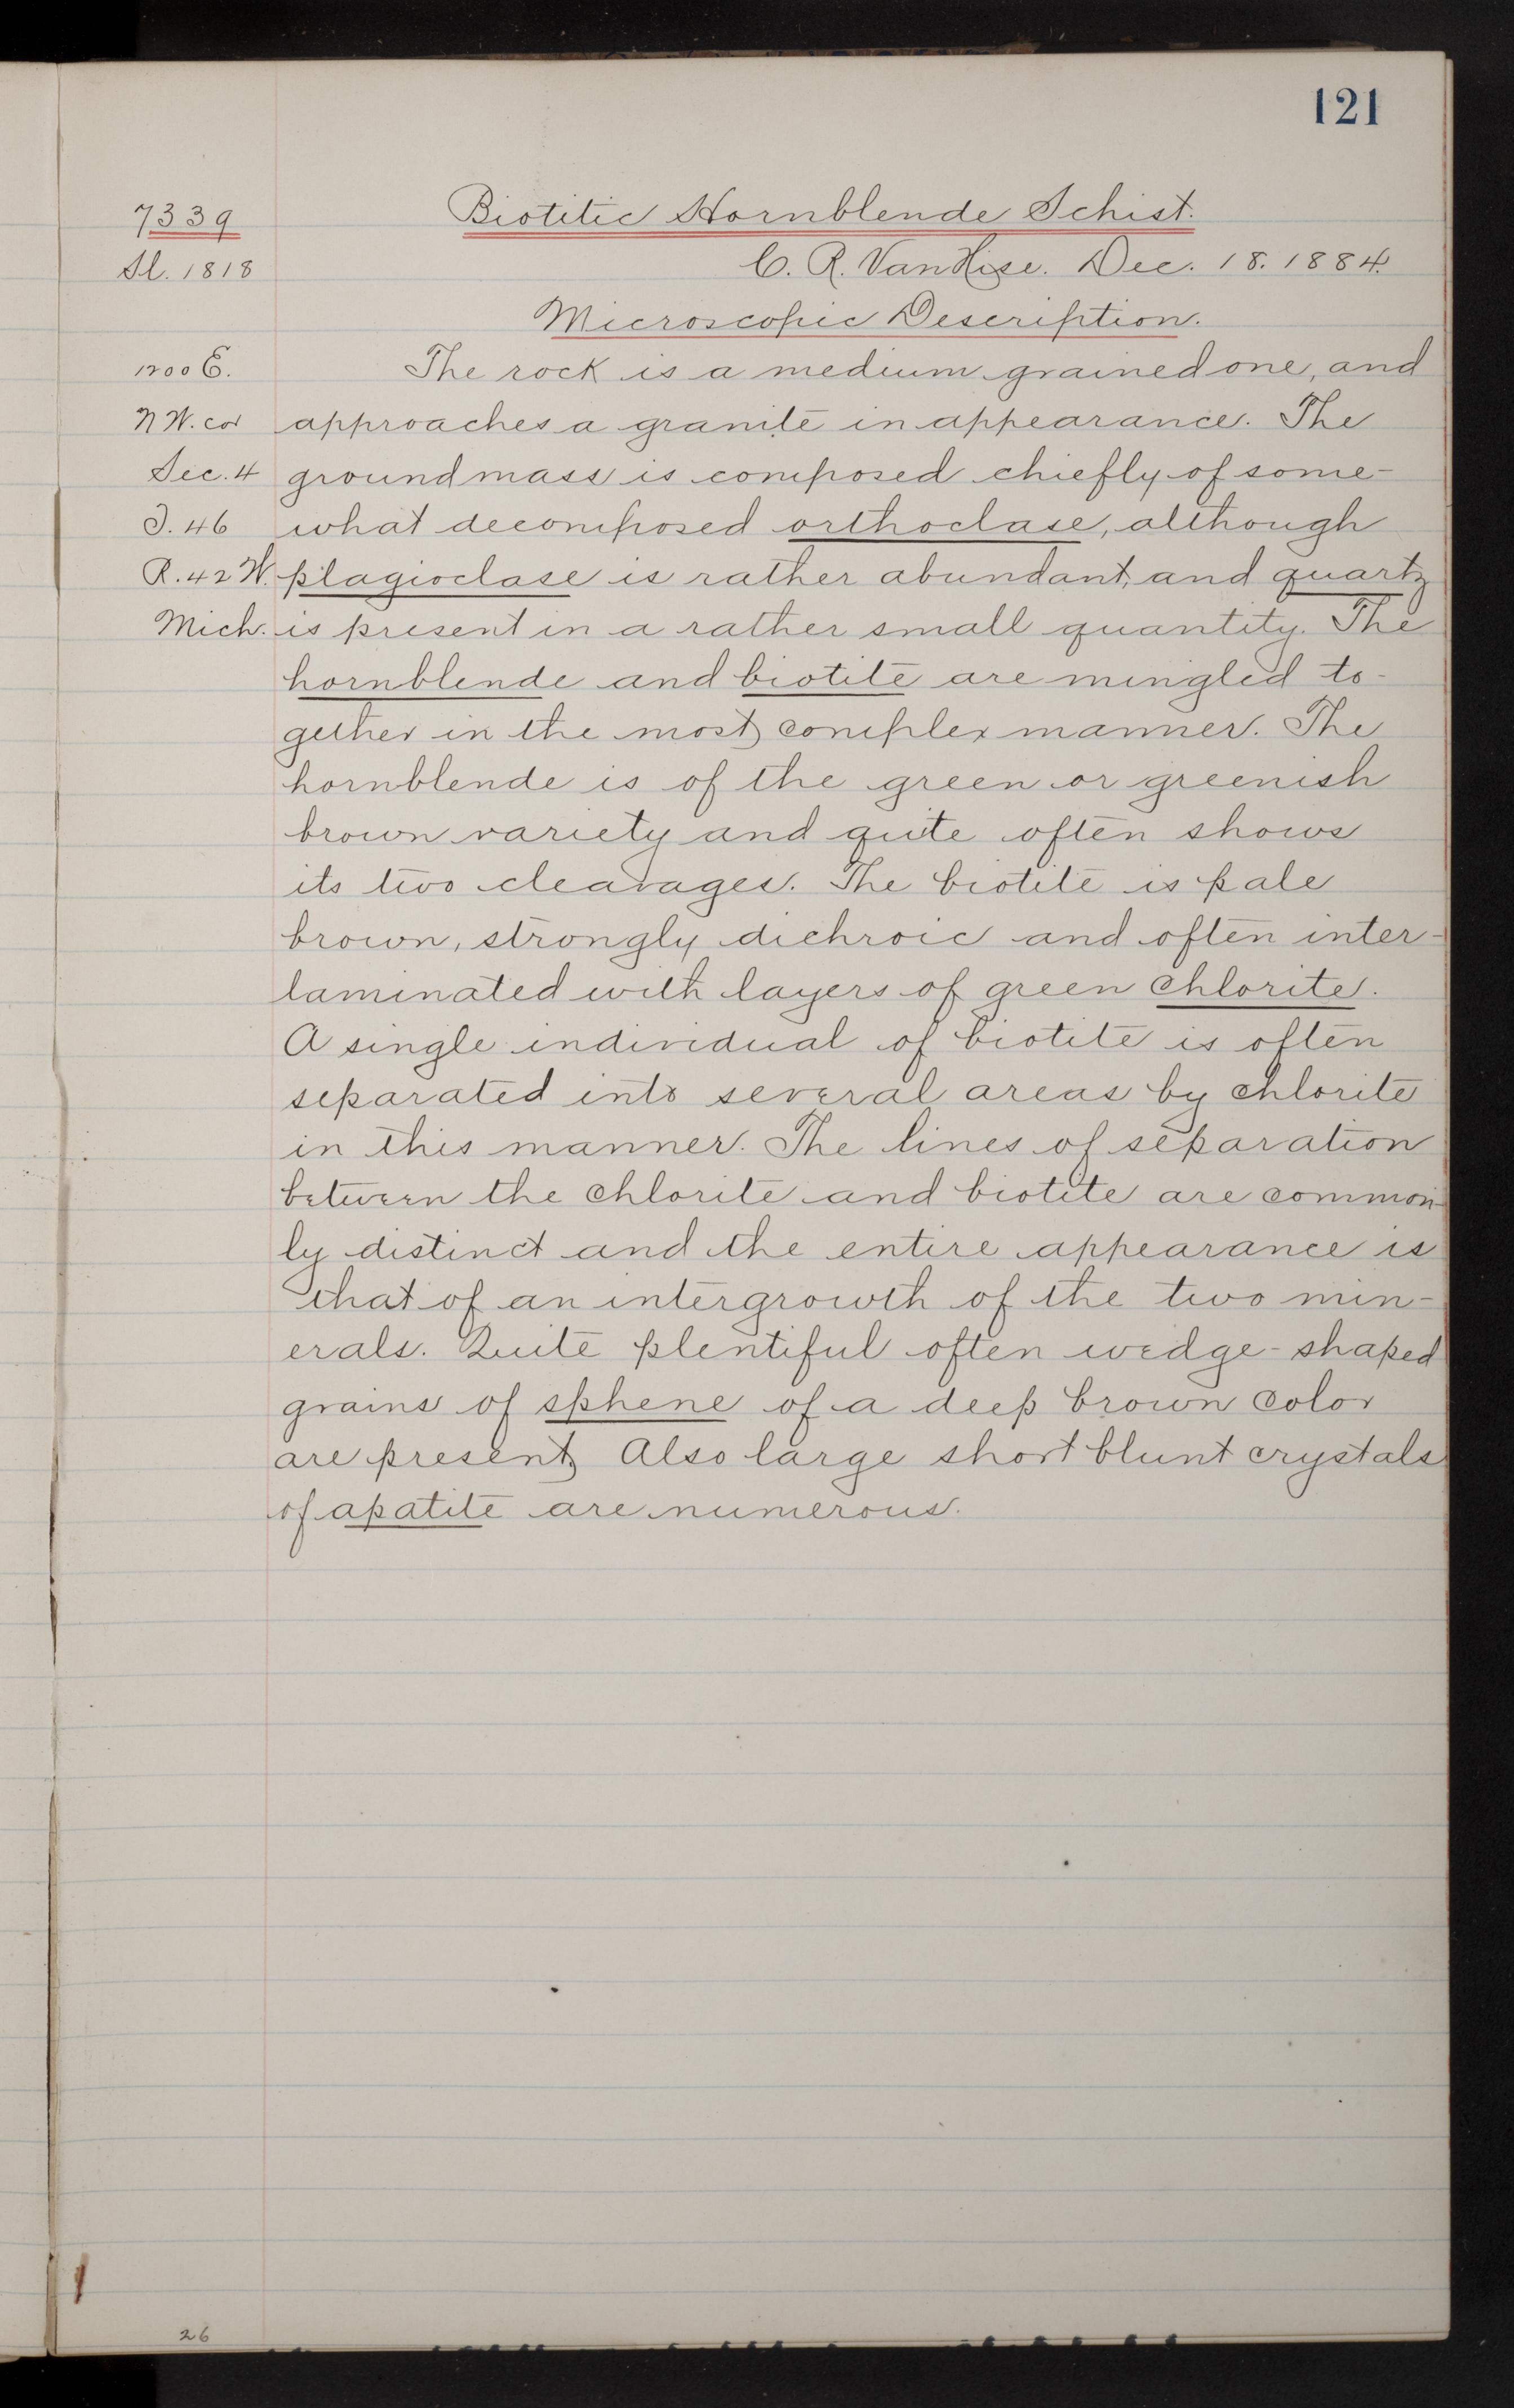 121
7339 Biotitic Hornblende Schist.
Sl. 1818 C. R. Van Hise. Dec. 18. 1884.
Microscopic Description.
1200 E. The rock is a medium grained one, and
N W. cor approaches a granite in appearance. The
Sec. 4 groundmass is composed chiefly of some-
T. 46 what decomposed orthoclase, although
R. 42 W. plagioclase is rather abundant, and quartz
Mich. is present in a rather small quantity. The
hornblende and biotite are mingled to-
gether in the most complex manner. The
hornblende is of the green or greenish
brown variety and quite often shows
its two cleavages. The biotite is pale
brown, strongly dichroic and often inter-
laminated with layers of green chlorite.
A single individual of biotite is often
separated into several areas by chlorite
in this manner. The lines of separation
between the chlorite and biotite are common-
ly distinct and the entire appearance is
that of an intergrowth of the two min-
erals. Quite plentiful often wedge-shaped
grains of sphene of a deep brown color
are present, Also large short blunt crystals
of apatite are numerous.
26